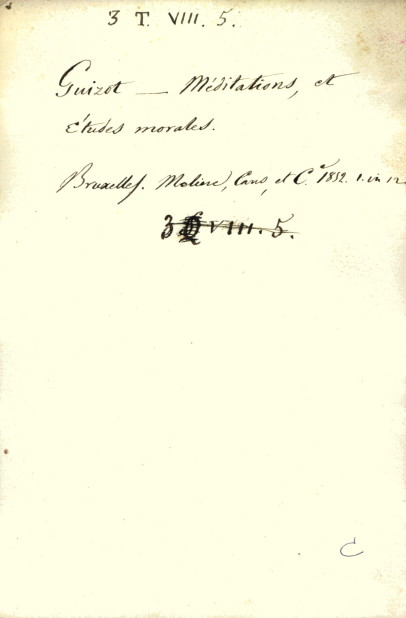 3 T. VIII. 5.
Guizot — Méditations, et
études morales.
Bruxelles. Meline, Cans, et C.ª 1852. 1. in 12
3 VIII. 5.
C